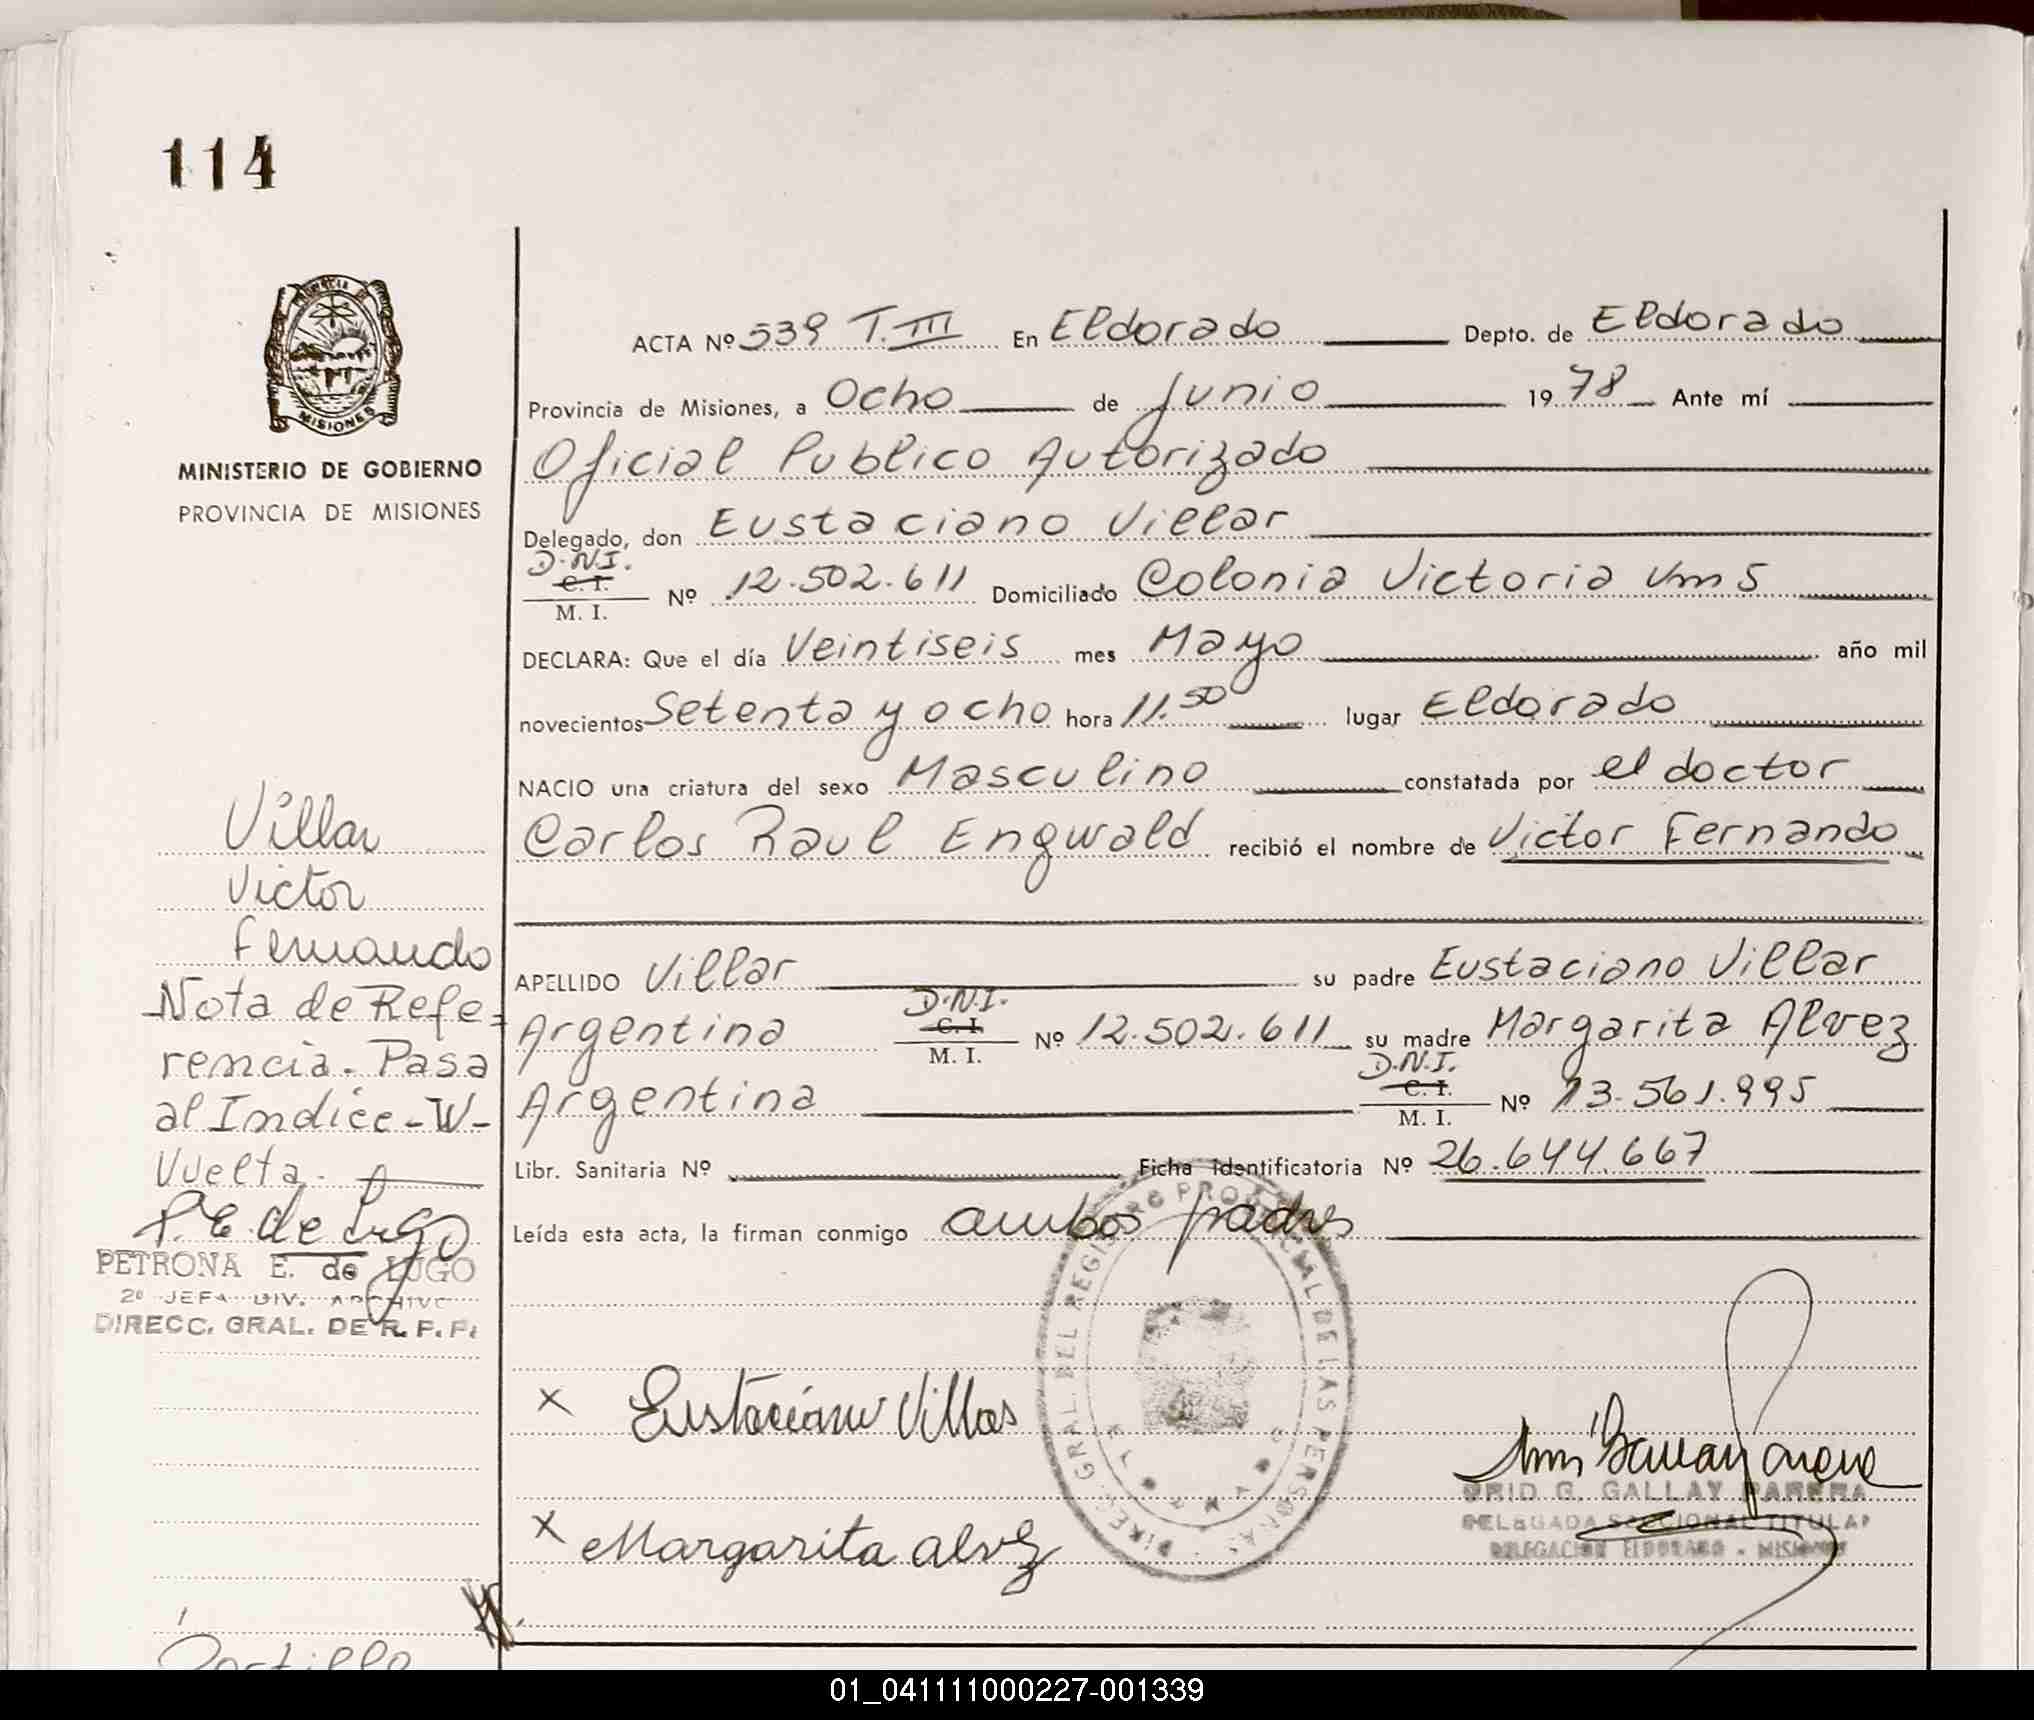 114
MINISTERIO DE GOBIERNO
PROVINCIA DE MISIONES
MISIONES
ACTA Nº 539 T. III En Eldorado Depto. de Eldorado
Provincia de Misiones, a Ocho de Junio 1978 Ante mí
Oficial Publico Autorizado
Delegado, don Eustaciano Villar
D.N.I.
C. I.
M. I. Nº 12.502.611 Domiciliado Colonia Victoria Km 5
DECLARA: Que el día Veintiseis mes Mayo año mil
novecientos Setenta y ocho hora 11.50 lugar Eldorado
NACIO una criatura del sexo Masculino constatada por el doctor
Carlos Raul Engwald recibió el nombre de Victor Fernando
APELLIDO Villar su padre Eustaciano Villar
Argentina D.N.I. C. I. M. I. Nº 12.502.611 su madre Margarita Alvez
Argentina D.N.I. C. I. M. I. Nº 13.561.995
Libr. Sanitaria Nº Ficha Identificatoria Nº 26.644.667
Leída esta acta, la firman conmigo ambos padres
x Eustaciano Villar
x Margarita alvez
DIREC. GRAL. DEL REGISTRO PROVINCIAL DE LAS PERSONAS
GALLAY PARERA
DELEGADA SECCIONAL TITULAR
DELEGACION ELDORADO - MISIONES
Villar
Victor
Fernando
Nota de Refe-
rencia. Pasa
al Indice-W-
Vuelta.
P.E. de Lugo
PETRONA E. de LUGO
2º JEFA DIV. ARCHIVO
DIRECC. GRAL. DE R. P. P.
Portillo
01_041111000227-001339